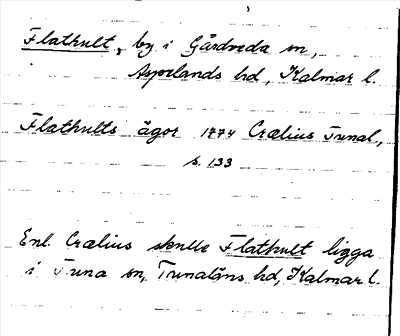 Flathult, by i Gårdveda sn,
Aspelands hd, Kalmar l.
Flathults ägor 1774 Crælius Tunal,
s. 133
Enl. Crælius skulle Flathult ligga
i Tuna sn, Tunaläns hd, Kalmar l.